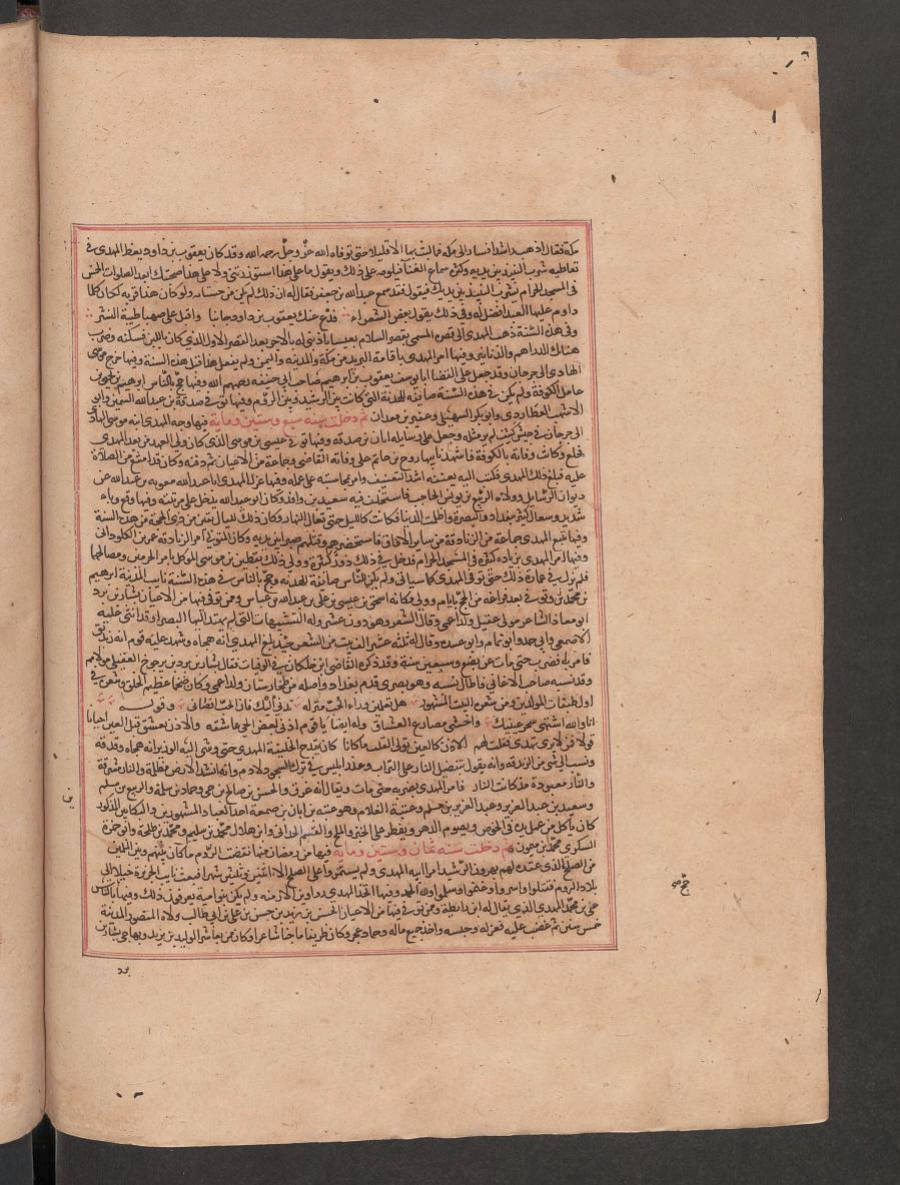 مكة فقال اذهب راشدا فسار الى مكة فما لبث بها الا قليلا حتى توفاه الله عز وجل رحمه الله وقد كان يعقوب بن داود يعظ المهدى فى
تعاطيه شرب النبيذ بين يديه وكثرة سماع الغنا فيلومه على ذلك ويقول ما على هذا استوزرتنى ولا على هذا صحبتك ابعد الصلوات الخمس
فى المسجد الحرام تشرب النبيذ بين يديك فيقول فقد سمع عبد الله بن جعفر فقال له ان ذلك لم يكن من حسناته ولو كان هذا قربه لكان كلما
داوم عليها العبد افضل له وفى ذلك يقول بعض الشعراء فدع عنك يعقوب بن داود جانبا واقبل على صهبا طيبة النشر
وفى هذه السنة ذهب المهدى الى قصره المسمى بقصر السلام بعيساباذ بنى له بالاجر بعد القصر الاول الذى كان باللبن فسكنه وضرب
هنالك الدراهم والدنانير وفيها امر المهدى باقامة البريد بين مكة والمدينه واليمن ولم يفعل هذا قبل هذه السنة وفيها خرج موسى
الهادى الى جرجان وقد جعل على القضا ابا يوسف يعقوب بن ابرهيم صاحب ابى حنيفه رحمهم الله وفيها حج بالناس ابرهيم بن يحيى بن
عامل الكوفة ولم يكن فى هذه السنة صايفة للهدنة التى كانت بين الرشيد وبين الروم وفيها توفى صدقة بن عبد الله السمين وابو
الاشهب العطاردى وابو بكر النهشلى وعفير بن معدان ثم دخلت سنة سبع وستين وماية فيها وجه المهدى ابنه موسى الهادى
الى جرجان فى جيش كثيف لم ير مثله وجعل على رسايله ابان بن صدقه وفيها توفى عيسى بن موسى الذى كان ولى العهد من بعد المهدى
فخلع وكانت وفاته بالكوفة فاشهد نايبها روح بن حاتم على وفاته القاضى وجماعة من الاعيان ثم دفنه وكان قد امتنع من الصلاة
عليه فبلغ ذلك المهدى فكتب اليه يعنفه اشد التعنيف وامر بمحاسبته على عمله وفيها عزل المهدى ابا عبد الله معويه بن عبد الله عن
ديوان الرسايل وولاه الربيع بن يونس الحاجب فاستخلف فيه سعيد بن واقد وكان ابو عبد الله يدخل على مرتبته وفيها وقع وباء
شديد وسعال كثير ببغداد والبصرة واظلمت الدنيا فكانت كالليل حتى تعالى النهار وكان ذلك لليال بقين من ذى الحجة من هذه السنة
وفيها تتبع المهدى جماعة من الزنادقة من ساير الافاق فاستحضرهم وقتلهم صبرا بين يديه وكان المتولى امر الزنادقه عمر بن الكلوذانى
وفيها امر المهدى بزياده كثيره فى المسجد الحرام فدخل فى ذلك دور كثيرة وولى ذلك يقطين بن موسى الموكل بامر الحرمين ومصالحهما
فلم يزل فى عمارة ذلك حتى توفى المهدى كما سياتى ولم يكن للناس صايفة للهدنه وحج بالناس فى هذه السنة نايب المدينة ابرهيم
بن محمد بن وتوفى بعد فراغه من الحج بايام وولى مكانه اسحق بن عيسى بن على بن عبد الله بن عباس وممن توفى فيها من الاعيان بشار بن برد
ابو معاذ الشاعر مولى عقيل ولد اعمى وقال الشعر وهو دون عشر وله التشبيهات التى لم يهتد اليها البصراء وقد اثنى عليه
الاصمعى وابو تمام وابو عبيده وقال له ثلثة عشر الف بيت من الشعر فلما بلغ المهدى انه هجاه وشهد عليه قوم انه زنديق
فامر به فضرب حتى مات عن بضع وسبعين سنة وقد ذكره القاضى ابن خلكان فى الوفيات فقال بشار بن برد بن يرجوخ العقيلى مولاهم
وقد نسبه صاحب الاغانى فاطال نسبه وهو بصرى قدم بغداد واصله من طخارستان ولد اعمى وكان ضخما عظيم الخلق وشعره فى
اول طبقات المولدين ومن شعره البيت المشهور هل تعلمين وراء الحب منزلة تدنى اليك فان الحب اقصانى وقوله
انا والله اشتهى سحر عينيك واخشى مصارع العشاق وله ايضا يا قوم اذنى لبعض الحى عاشقه والاذن تعشق قبل العين احيانا
قالوا لمن لا ترى تهذى فقلت لهم الاذن كالعين توفى القلب ما كانا كان يمدح الخليفة المهدى حتى وشى اليه الوزير انه هجاه وقذفه
ونسبه الى شى من الزندقه وانه يقول بتفضيل النار على التراب وعذر ابليس فى ترك السجود لادم وانه انشد الارض مظلمة والنار مشرقة
والنار معبودة مذ كانت النار فامر المهدى بضربه حتى مات ويقال انه غرق والحسن بن صالح بن حى وحماد بن سلمة والربيع بن مسلم
وسعيد بن عبد العزيز وعبد العزيز بن مسلم وعتبة الغلام وهو عتبة بن ابان بن صمعة احد العباد المشهورين والبكايين المذكور
كان ياكل من عمل يده فى الخوص ويصوم الدهر ويفطر على الخبز والملح والقسم الحدانى وابو هلال محمد بن سليم ومحمد بن طلحة وابو حمزة
السكرى محمد بن ميمون ثم دخلت سنه ثمان وستين وماية فيها فى رمضان منها نقضت الروم ما كان بينهم وبين المسلمين
من الصلح الذى عقده لهم هرون الرشيد امر ابيه المهدى ولم يستمروا على الصلح الا اثنين وثلثين شهرا فبعث نايب الجزيرة خيلا الى
بلاد الروم فقتلوا واسروا وغنموا وسلموا ولله الحمد وفيها اتخذ المهدى دواوين الازمة ولم يكن بنو امية يعرفون ذلك وفيها حج بالناس
على بن محمد المهدى الذى يقال له ابن ريطة وممن توفى فيها من الاعيان الحسن بن زيد بن حسن بن على بن ابى طالب ولاه المنصور المدينة
خمس سنين ثم غضب عليه فعزله وحبسه واخذ جميع ماله وحماد عجرد كان ظريفا ماجنا شاعرا وكان ممن يعاشر الوليد بن يزيد ويهاجى بشار بن
برد